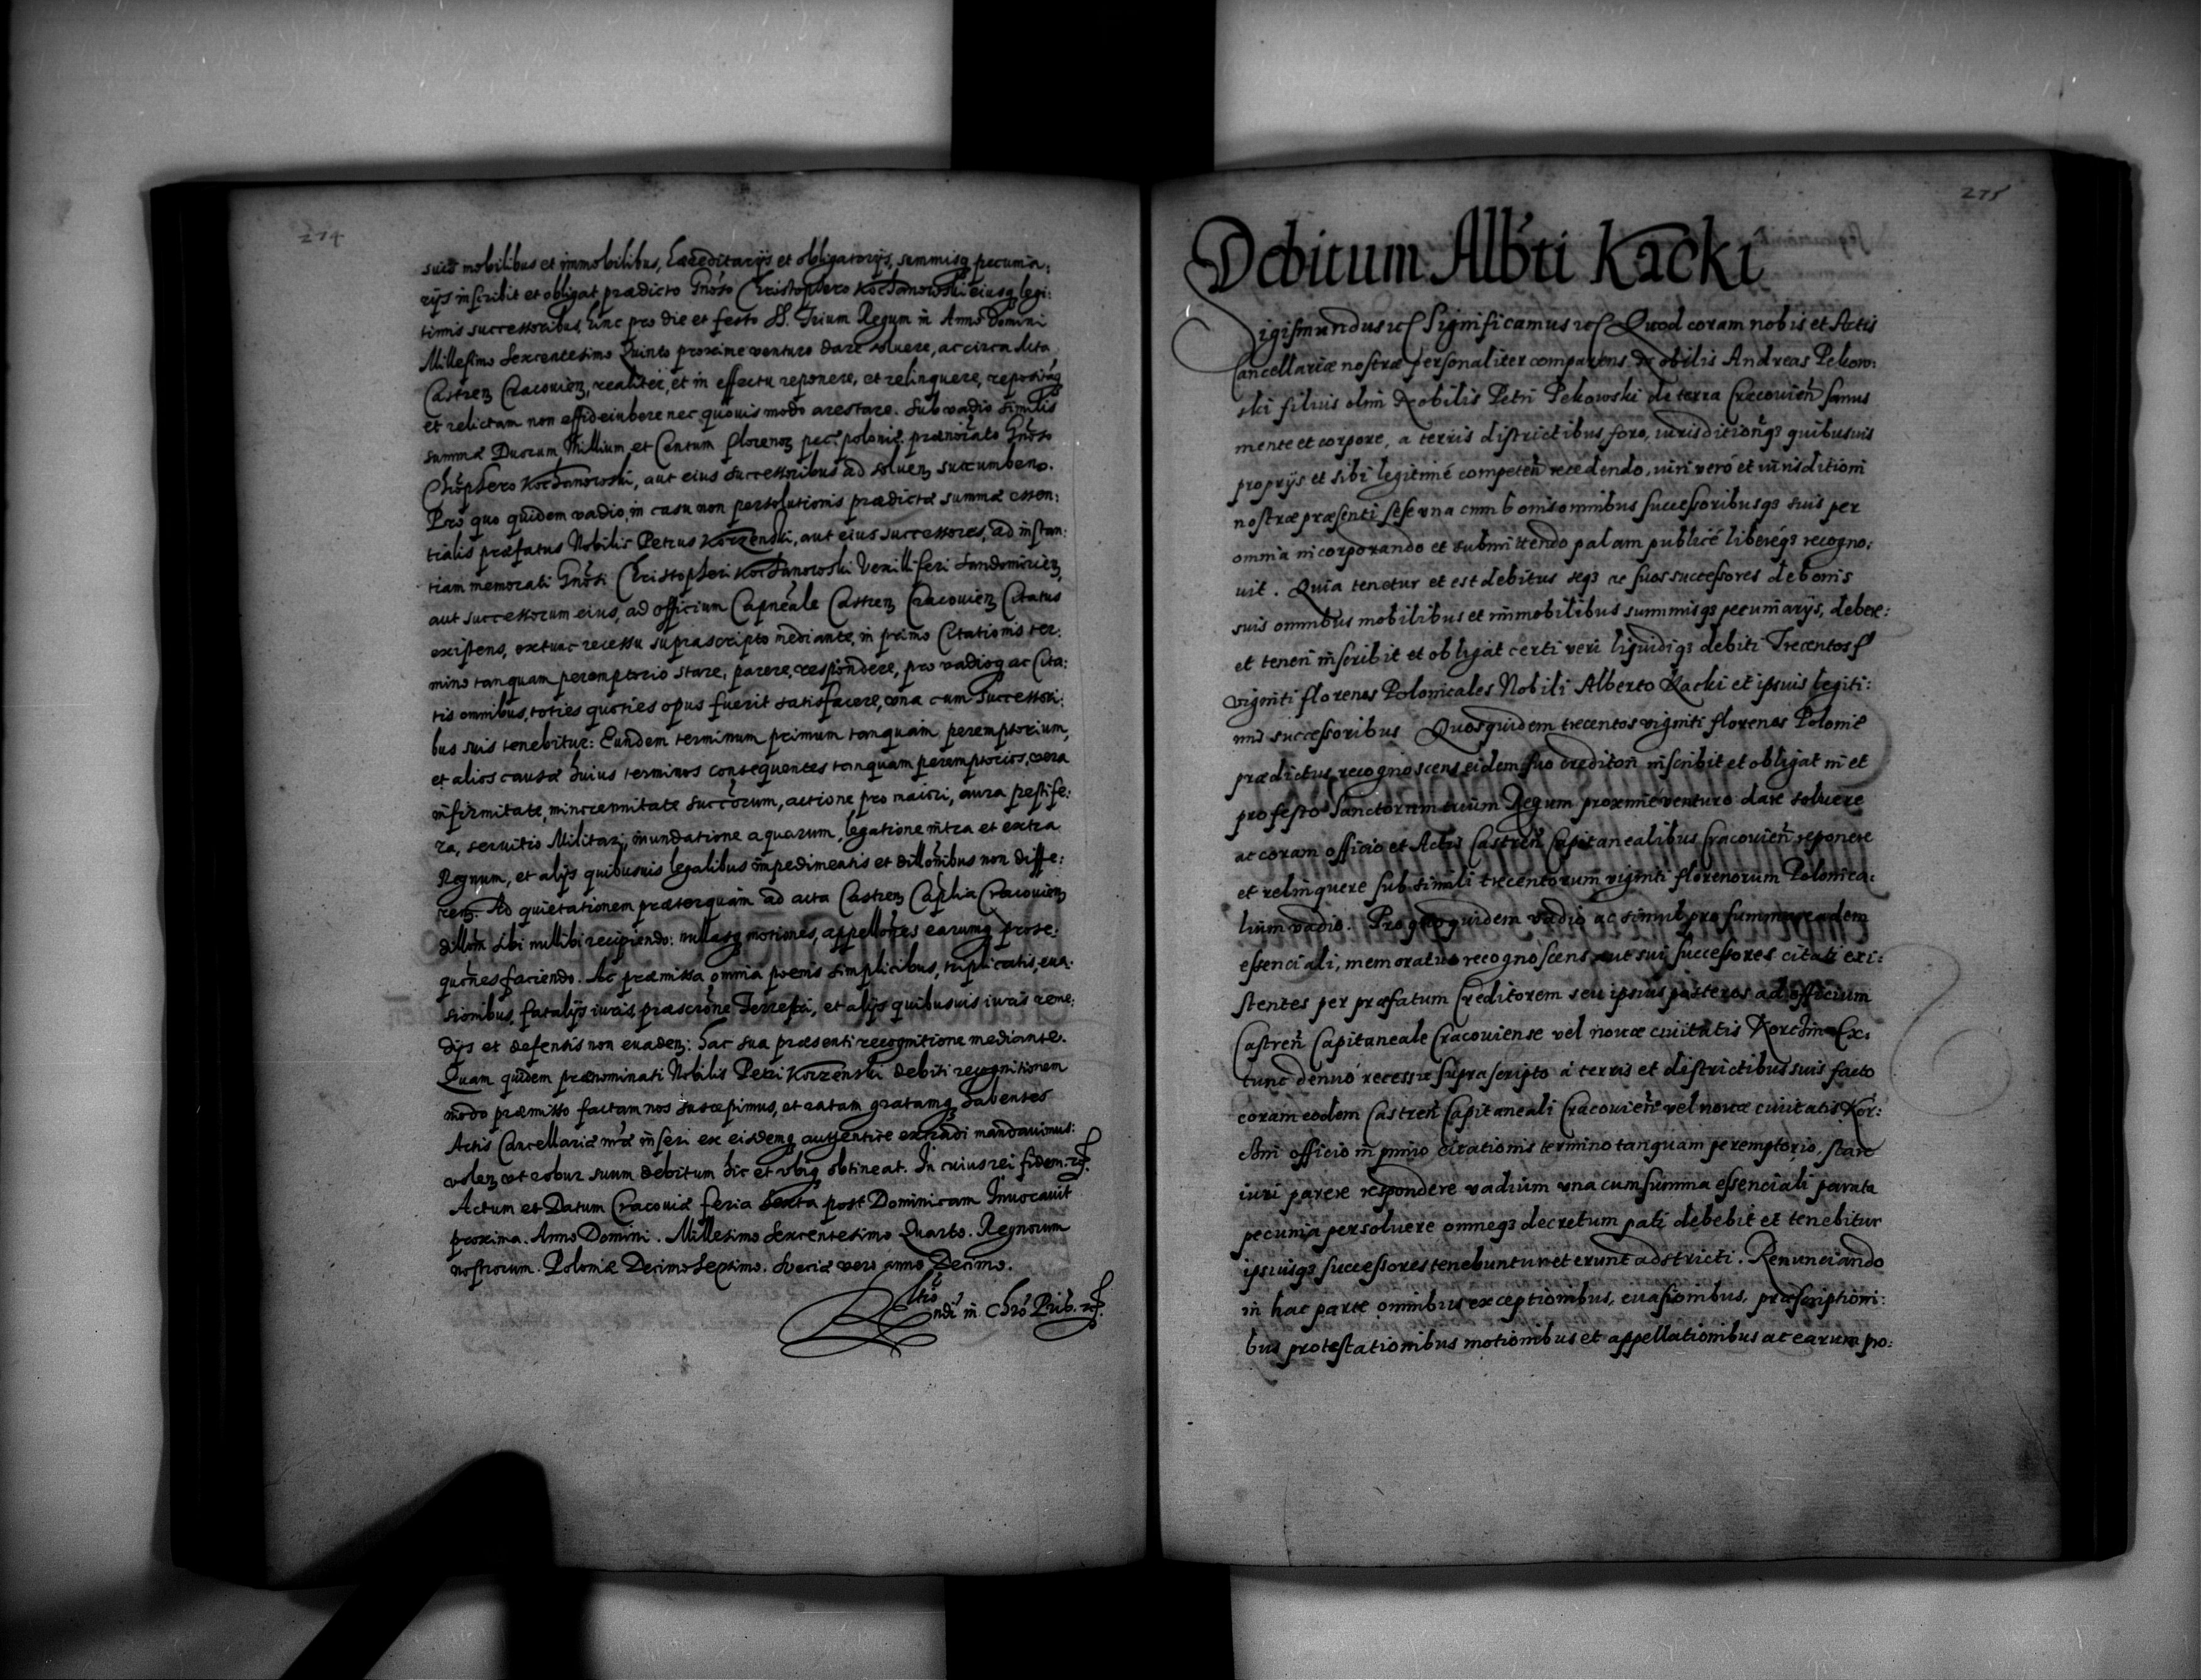 274
suis mobilibus et immobilibus, haereditarijs et obligatorijs, summisq pecunia:
rijs inscribit et obligat praedicto Gnoso Christophero Kochanowski eiusq legi:
timis successoribus hinc pro die et festo SS. Trium Regum in Anno Domini
Millesimo Sexcentesimo Quinto proxime venturo dare soluere, ac circa Acta
Castren Cracouien, realiter, et in effectu reponere, et relinquere, repositaq
et relictam non effideiubere nec quouis modo arestare. Sub vadio similis
summae Duorum Millium et Centum florenor pec: polonic. praenoiato Gnoso
Chrophero Kochanowski, aut eius successoribus ad soluen succumbeno.
Pro quo quidem vadio, in casu non persolutionis praedictae summae essen:
tialis praefatus Nobilis Petrus Korzenski, aut eius successores, ad instan:
tiam memorati Gnosi Christopheri Kochanowski Vexilliferi Sandomirien,
aut successorum eius, ad officium Capneale Castren Cracouien Citatus
existens, extunc recessu suprascripto mediante, in primo Citationis ter:
mino tanquam peremptorio stare, parere, respondere, pro vadioq ac Cita:
tis omnibus, toties quoties opus fuerit satisfacere, vna cum successori:
bus suis tenebitur: Eundem terminum primum tanquam peremptorium,
et alios causae huius terminos consequentes tanquam peremptorios, vera
infirmitate, minorennitate succorum, actione pro maiori, aura pestife:
ra, seruitio Militari, inundatione aquarum, legatione intra et extra
Regnum, et alijs quibusuis legalibus impedimentis et dillonibus non diffe:
ren. Ad quietationem praeterquam ad acta Castren Caplia Cracouien
dillom sibi nullibi recipiendo: nullasq motiones, appellones earumq prose:
quones faciendo. Ac praemissa omnia poenis simplicibus, triplicatis, eua:
sionibus, fatalijs iuris, praescrone Terrestri, et alijs quibusuis iuris reme:
dijs et defensis non euaden: hac sua praesenti recognitione mediante.
Quam quidem praenominati Nobilis Petri Korzenski debiti recognitionem
modo praemisso factam nos suscepimus, et ratam gratamq habentes
Actis Cancellariae nrae inseri ex eisdemq autentice extradi mandauimus:
volen vt robur suum debitum hic et vbiq obtineat. In cuius rei fidem. etc.
Actum et Datum Cracouiae feria Sexta post Dominicam Inuocauit
proxima. Anno Domini. Millesimo Sexcentesimo Quarto. Regnorum
nostrorum. Poloniae Decimo Septimo. Sueciae vero anno Decimo.
ndi in Chro Prib. etc.
275
Debitum Albti Kacki
Sigismundus etc Significamus etc Quod coram nobis et Actis
Cancellariae nostrae personaliter comparens Nobilis Andreas Pekow:
ski filius olim Nobilis Petri Pekowski de terra Cracouien sanus
mente et corpore, a terris districtibus, foro, iurisditionqз quibusuis
proprijs et sibi legitimé competen recedendo, iuri veró et iurisditioni
nostrae praesenti sese vna cum bonis omnibus successoribusqз suis per
omnia incorporando et submittendo palam publicé liberéqз recogno:
uit. Quia tenetur et est debitus seqз ac suos successores de bonis
suis omnibus mobilibus et immobilibus summisqз pecuniarijs, debere:
et teneri inscribit et obligat certi veri liquidiqз debiti Trecentos
viginti florenos Polonicales Nobili Alberto Kacki et ipsius legiti:
mis successoribus Quosquidem trecentos viginti florenos Polonie
praedictus recognoscens eidem suo creditori inscribit et obligat in et
pro festo Sanctorum trium Regum proximé venturo dare soluere
ac coram officio et Actis Castren Capitanealibus Cracouien reponere
et relinquere sub simili trecentorum viginti florenorum Polonica:
lium vadio. Pro quo quidem vadio ac simul pro summa eadem
essenciali, memoratus recognoscens aut sui successores citati exi:
stentes per praefatum Creditorem seu ipsius posteros ad officium
Castren Capitaneale Cracouiense vel nouae ciuitatis Korchin Ex:
tunc denuó recessu suprascripto á terris et districtibus suis facto
coram eodem Castren Capitaneali Cracouien vel nouae ciuitatis Kor:
chin officio in primo citationis termino tanquam peremptorio, stare
iuri parere respondere vadium vna cum summa essenciali parata
pecunia persoluere omneqз decretum pati debebit et tenebitur
ipsiusqз successores tenebuntur et erunt adstricti. Renunciando
in hac parte omnibus exceptionibus, euasionibus, praescriptioni:
bus protestationibus motionibus et appellationibus ac earum pro: